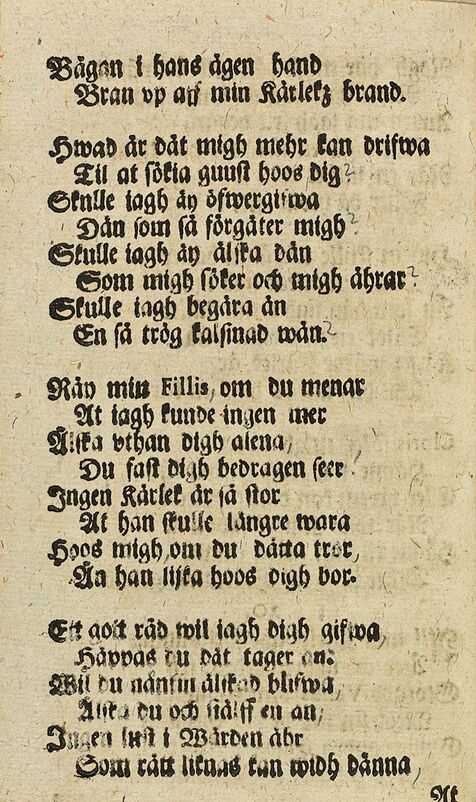 Bägan i hans ägen hand
Bran vp aff min Kärlekz brand.
Hwad är dät migh mehr kan drifwa
Til at sökia guust hoos dig?
Skulle iagh äy öfwergifwa
Dän som så förgäter migh?
Skulle iagh äy älska dän
Som migh söker och migh ährar?
Skulle iagh begära än
En så trög kalsinad wän.?
Näy min Fillis, om du menar
At iagh kunde ingen mer
Älska vthan digh alena,
Du fast digh bedragen seer!
Ingen Kärlek är så stor
At han skulle längre wara
Hoos migh, om du dätta tror,
Än han lijka hoos digh bor.
Ett gott råd wil iagh digh gifwa,
Häppas du dät tager an:
Wil du nånsin älskad blifwa,
Älska du och siälff en an,
Ingen lust i Wärden ähr
Som rätt liknas kan widh dänna,
At